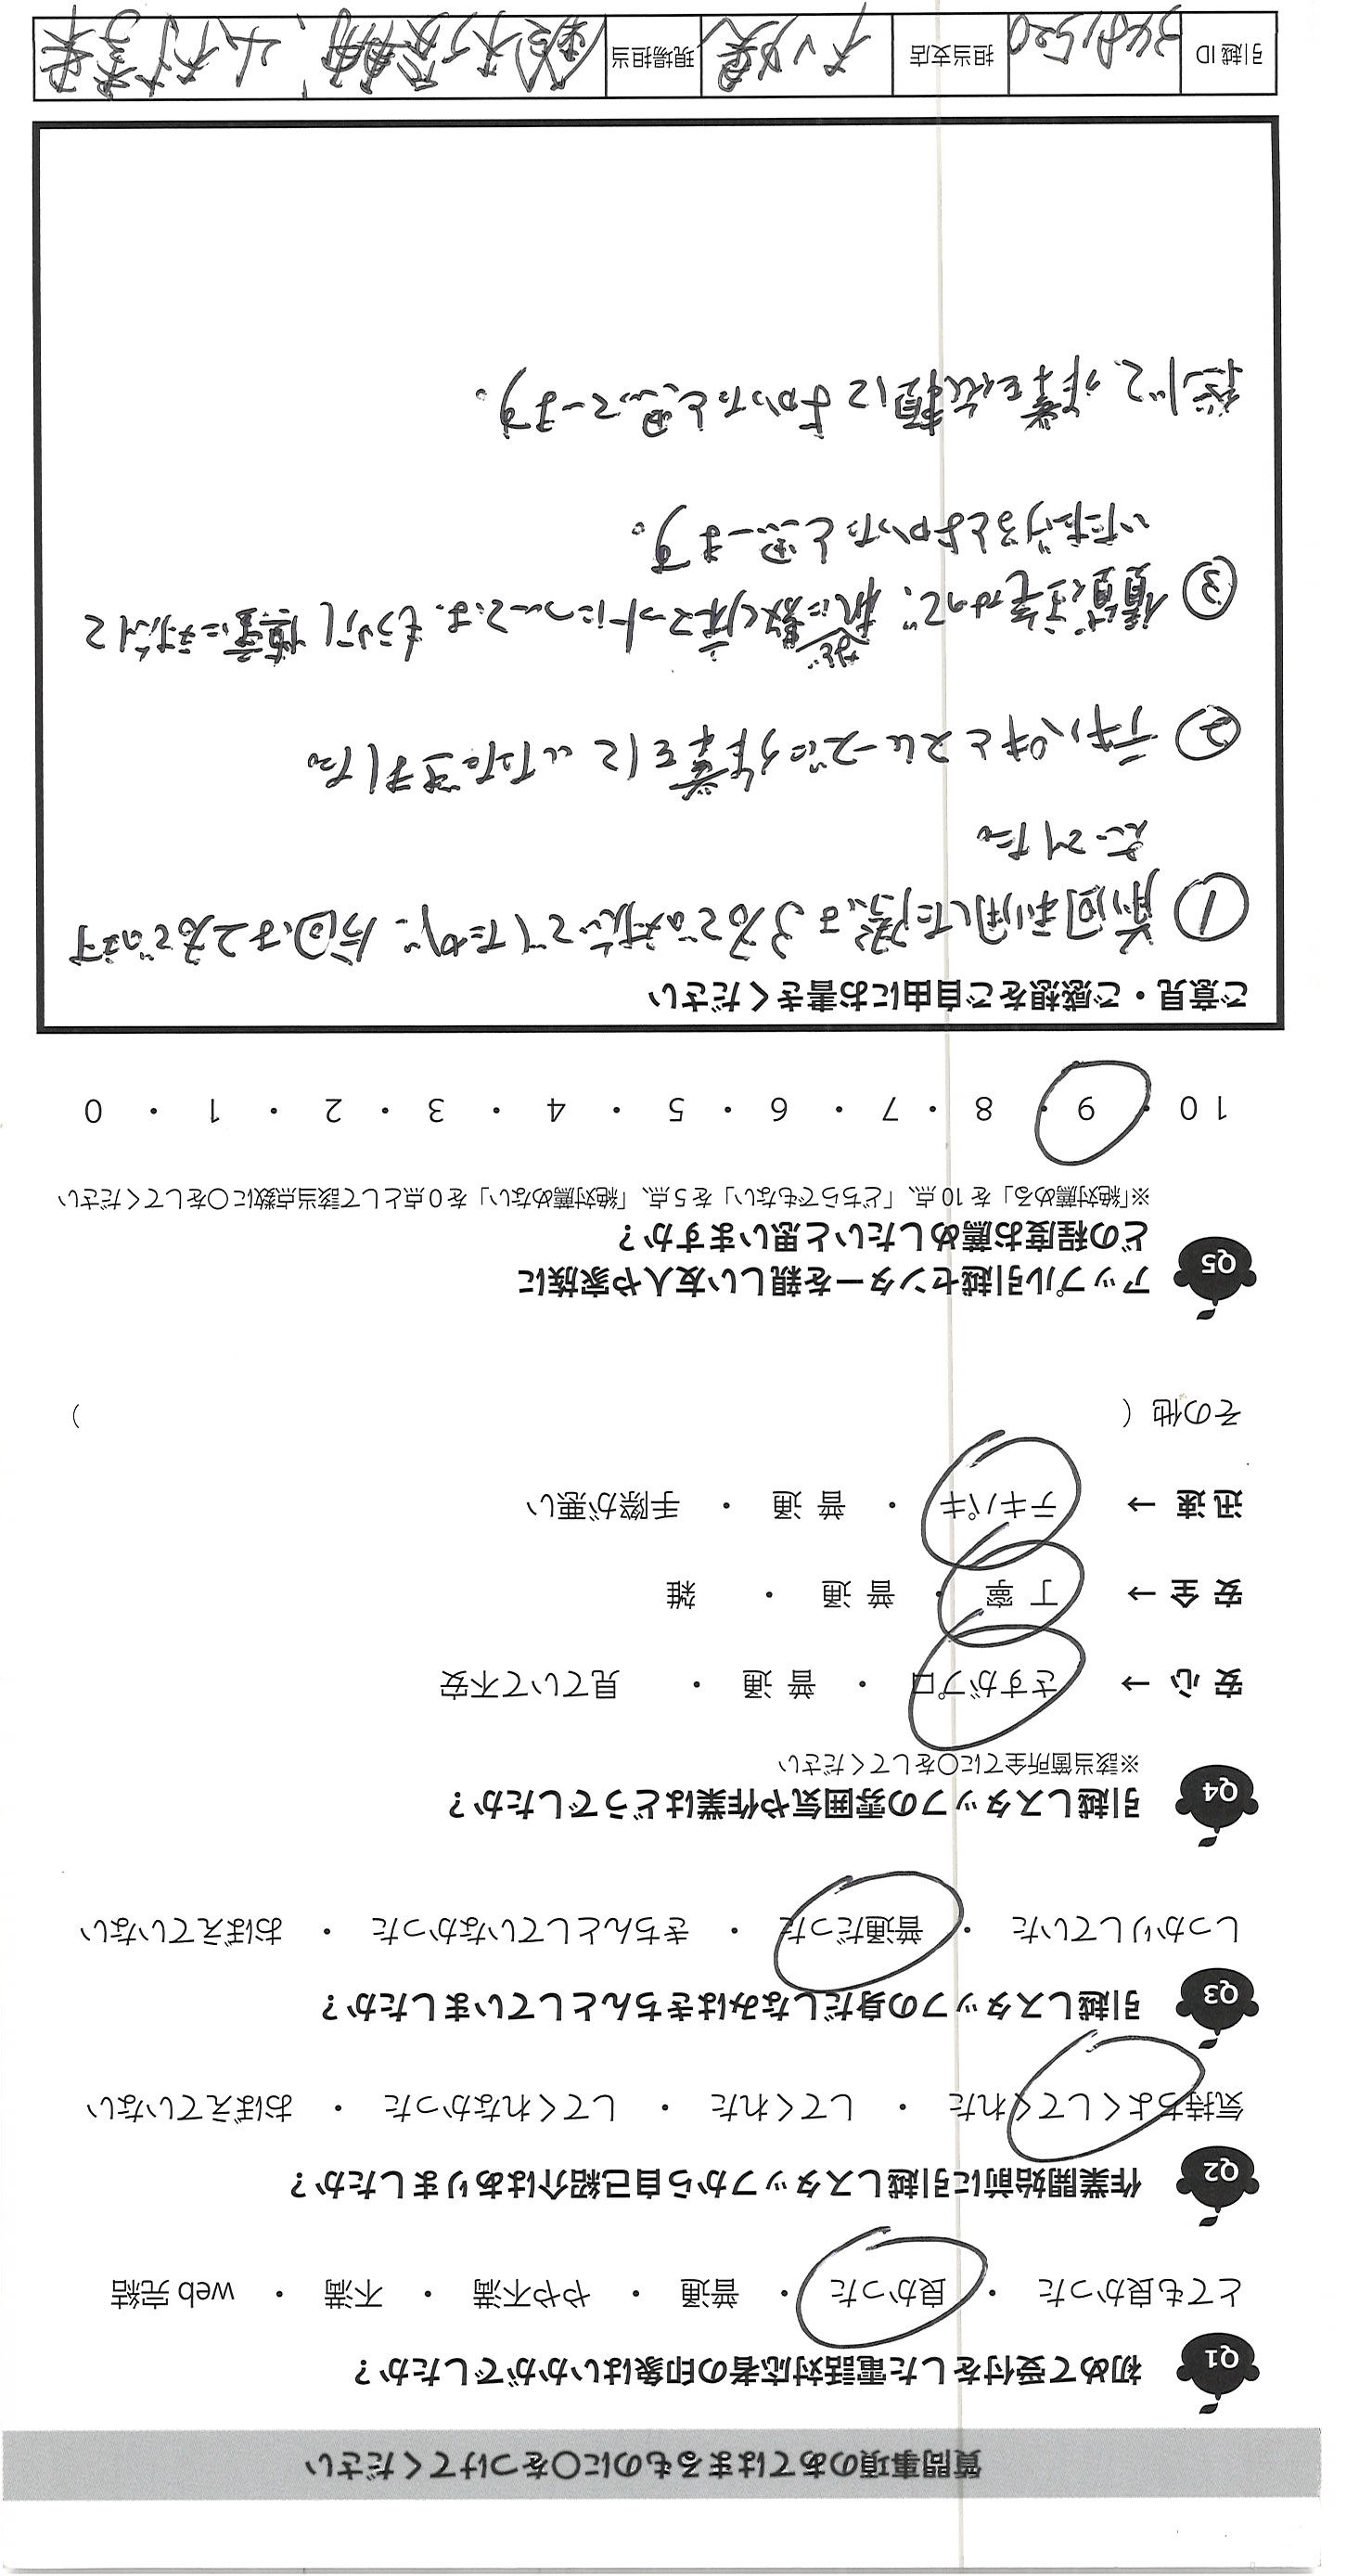 質問事項のあてはまるものに〇をつけてください
Q1 初めて受付をした電話対応者の印象はいかがでしたか?
とても良かった ・ 良かった ・ 普通 ・ やや不満 ・ 不満 ・ web 完結
Q2 作業開始前に引越しスタッフから自己紹介はありましたか?
気持ちよくしてくれた ・ してくれた ・ してくれなかった ・ おぼえていない
Q3 引越しスタッフの身だしなみはきちんとしていましたか?
しっかりしていた ・ 普通だった ・ きちんとしていなかった ・ おぼえていない
Q4 引越しスタッフの雰囲気や作業はどうでしたか?
※該当箇所全てに〇をしてください
安心→ さすがプロ ・ 普通 ・ 見ていて不安
安全→ 丁寧 ・ 普通 ・ 雑
迅速→ テキパキ ・ 普通 ・ 手際が悪い
その他 ( )
Q5 アップル引越センターを親しい友人や家族に
どの程度お薦めしたいと思いますか?
※「絶対薦める」を10点、「どちらでもない」を5点、「絶対薦めない」を0点として該当点数に〇をしてください
10 ・ 9 ・ 8 ・ 7 ・ 6 ・ 5 ・ 4 ・ 3 ・ 2 ・ 1 ・ 0
ご意見・ご感想をご自由にお書きください
① 前回利用した際は3名での対応でしたが、今回は2名での対
応でした。
② テキパキとスムーズに作業をしていただきました。
③ 備品を、机など に敷く床マットについては、もう少し慎重に対応して
いただけるとよかったと思います。
総じて作業を依頼してよかったと思っています。
引越ID 3481520 担当支店 現場担当 鈴木